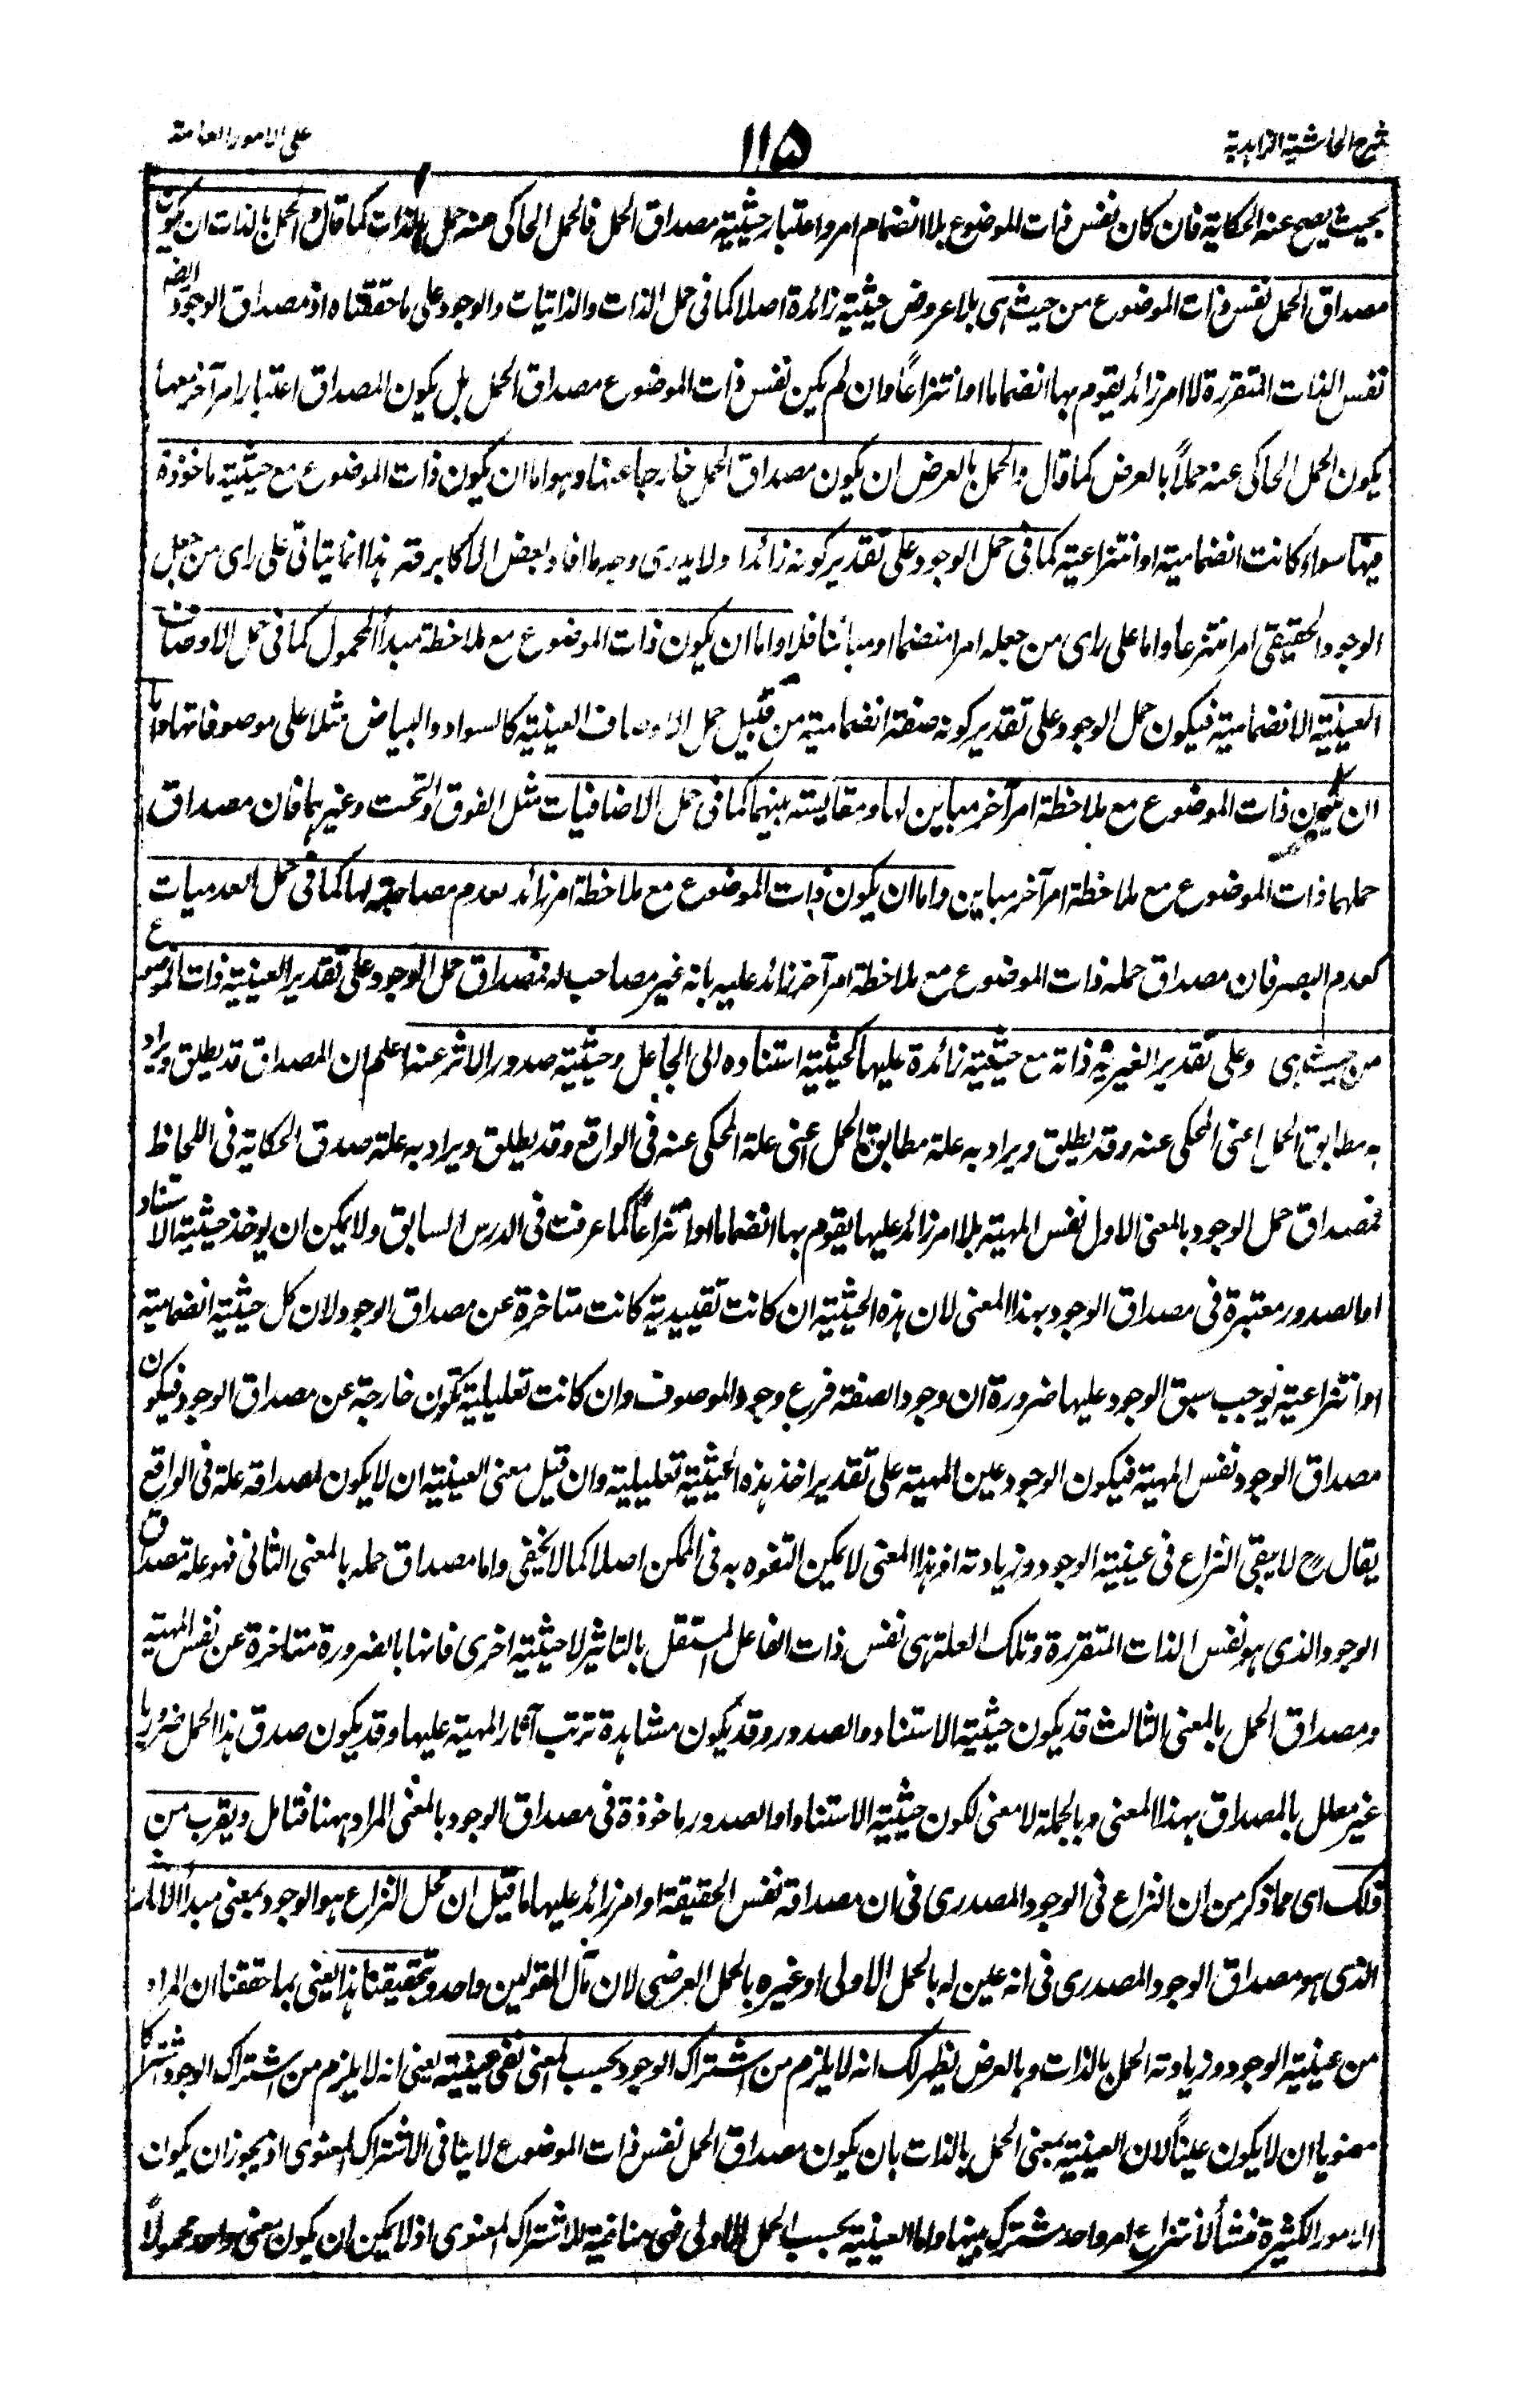 شرح الحاشية الزاهدية
١١٥
على الامور العامة
بحيث يصح عنه الحكاية فان كان نفس ذات الموضوع بلا انضمام امر واعتبار حيثية مصداق الحمل فالحمل الحاكى عنه حمل بالذات كما قال والحمل بالذات ان يكون
مصداق الحمل نفس ذات الموضوع من حيث هى بلا عروض حيثية زائدة اصلا كما فى حمل الذات والذاتيات والوجود على ما حققناه اذ مصداق الوجود ايضا
نفس الذات المتقررة لا امر زائد يقوم بها انضماما او انتزاعاً وان لم يكن نفس ذات الموضوع مصداق الحمل بل يكون المصداق اعتبار امر آخر معها
يكون الحمل الحاكى عنه حملاً بالعرض كما قال والحمل بالعرض ان يكون مصداق الحمل خارجا عنها وهو اما ان يكون ذات الموضوع مع حيثية ماخوذة
فيها سواء كانت انضمامية او انتزاعية كما فى حمل الوجود على تقدير كونه زائدا ولا يدرى وجه ما افاد بعض الاكابر قد هذا انما يتاتى على راى من جعل
الوجود الحقيقى امرا منتزعا واما على راى من جعله امرا منضما او مبائنا فلا واما ان يكون ذات الموضوع مع ملاحظة مبدأ المحمول كما فى حمل الاوصاف
العينية الانضمامية فيكون حمل الوجود على تقدير كونه صفة انضمامية من قبيل حمل الاوصاف العينية كالسواد والبياض مثلا على موصوفاتها واما
ان يكون ذات الموضوع مع ملاحظة امر آخر مباين لها ومقايسته بينهما كما فى حمل الاضافيات مثل الفوق والتحت وغيرهما فان مصداق
حملهما ذات الموضوع مع ملاحظة امر آخر مباين واما ان يكون ذات الموضوع مع ملاحظة امر زائد بعدم مصاحبته لها كما فى حمل العدميات
كعدم البصر فان مصداق حمله ذات الموضوع مع ملاحظة امر آخر زائد عليه بانه غير مصاحب له فمصداق حمل الوجود على تقدير العينية ذات الموضوع
من حيث هى وعلى تقدير الغيرية ذاته مع حيثية زائدة عليها كحيثية استناده الى الجاعل وحيثية صدور الاثر عنه اعلم ان المصداق قد يطلق ويراد
به مطابق الحمل اعنى المحكى عنه وقد يطلق ويراد به علة مطابق الحمل اعنى علة المحكى عنه فى الواقع وقد يطلق ويراد به علة صدق الحكاية فى اللحاظ
فمصداق حمل الوجود بالمعنى الاول نفس المهية بلا امر زائد عليها يقوم بها انضماما او انتزاعاً كما عرفت فى الدرس السابق ولا يمكن ان يوخذ حيثية الاستناد
او الصدور معتبرة فى مصداق الوجود بهذا المعنى لان هذه الحيثية ان كانت تقييدية كانت متاخرة عن مصداق الوجود لان كل حيثية انضمامية
او انتزاعية يوجب سبق الوجود عليها ضرورة ان وجود الصفة فرع وجود الموصوف وان كانت تعليلية تكون خارجة عن مصداق الوجود فيكون
مصداق الوجود نفس المهية فيكون الوجود عين المهية على تقدير اخذ هذه الحيثية تعليلية وان قيل معنى العينية ان لا يكون لمصداقه علة فى الواقع
يقال ح لا يبقى النزاع فى عينية الوجود وزيادته اذ هذا المعنى لا يمكن التفوه به فى الممكن اصلا كما لا يخفى واما مصداق حمله بالمعنى الثانى فهو علة مصداق
الوجود الذى هو نفس الذات المتقررة وتلك العلة هى نفس ذات الفاعل المستقل بالتاثير لا حيثية اخرى فانها بالضرورة متاخرة عن نفس المهية
ومصداق الحمل بالمعنى الثالث قد يكون حيثية الاستناد والصدور وقد يكون مشاهدة ترتب آثار المهية عليها وقد يكون صدق هذا الحمل ضروريا
غير معلل بالمصداق بهذا المعنى وبالجملة لا معنى لكون حيثية الاستناد او الصدور ماخوذة فى مصداق الوجود بالمعنى المراد ههنا فتامل ويقرب من
ذلك اى مما ذكر من ان النزاع فى الوجود المصدرى فى ان مصداقه نفس الحقيقة او امر زائد عليها ما قيل ان محل النزاع هو الوجود بمعنى مبدأ الاثار
الذى هو مصداق الوجود المصدرى فى انه عين له بالحمل الاولى او غيره بالحمل العرضى لان مآل القولين واحد وتحقيقنا هذا يعنى بما حققنا ان المراد
من عينية الوجود وزيادته الحمل بالذات وبالعرض يظهر لك انه لا يلزم من اشتراك الوجود بحسب المعنى نفى عينيته يعنى انه لا يلزم من اشتراك الوجود اشتراكا
معنويا ان لا يكون عيناً لان العينية بمعنى الحمل بالذات بان يكون مصداق الحمل نفس ذات الموضوع لا ينافى الاشتراك المعنوى اذ يجوز ان يكون
الامور الكثيرة منشأ لانتزاع امر واحد مشترك بينها واما العينية بحسب الحمل الاولى فهى منافية للاشتراك المعنوى اذ لا يمكن ان يكون معنى واحد محمولاً